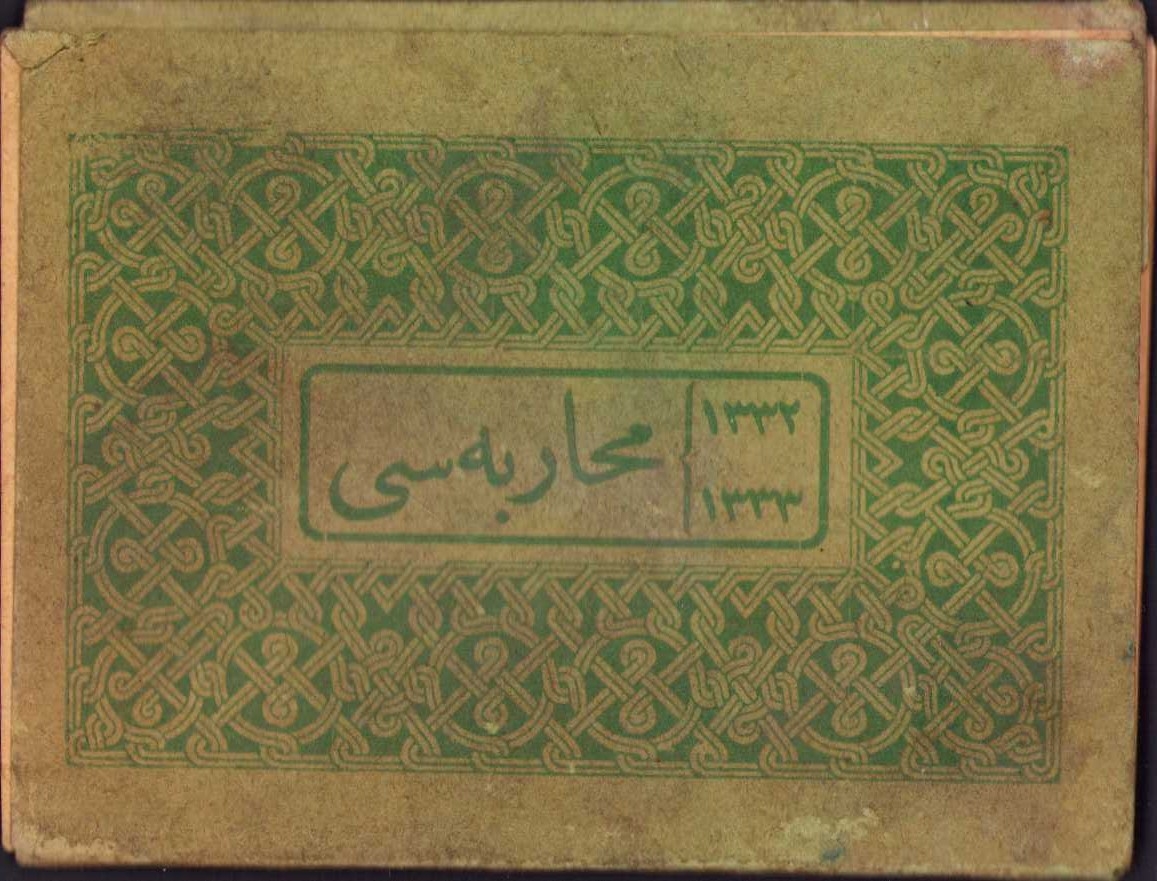 ١٣٣٢
١٣٣٣
محاربه‌سی